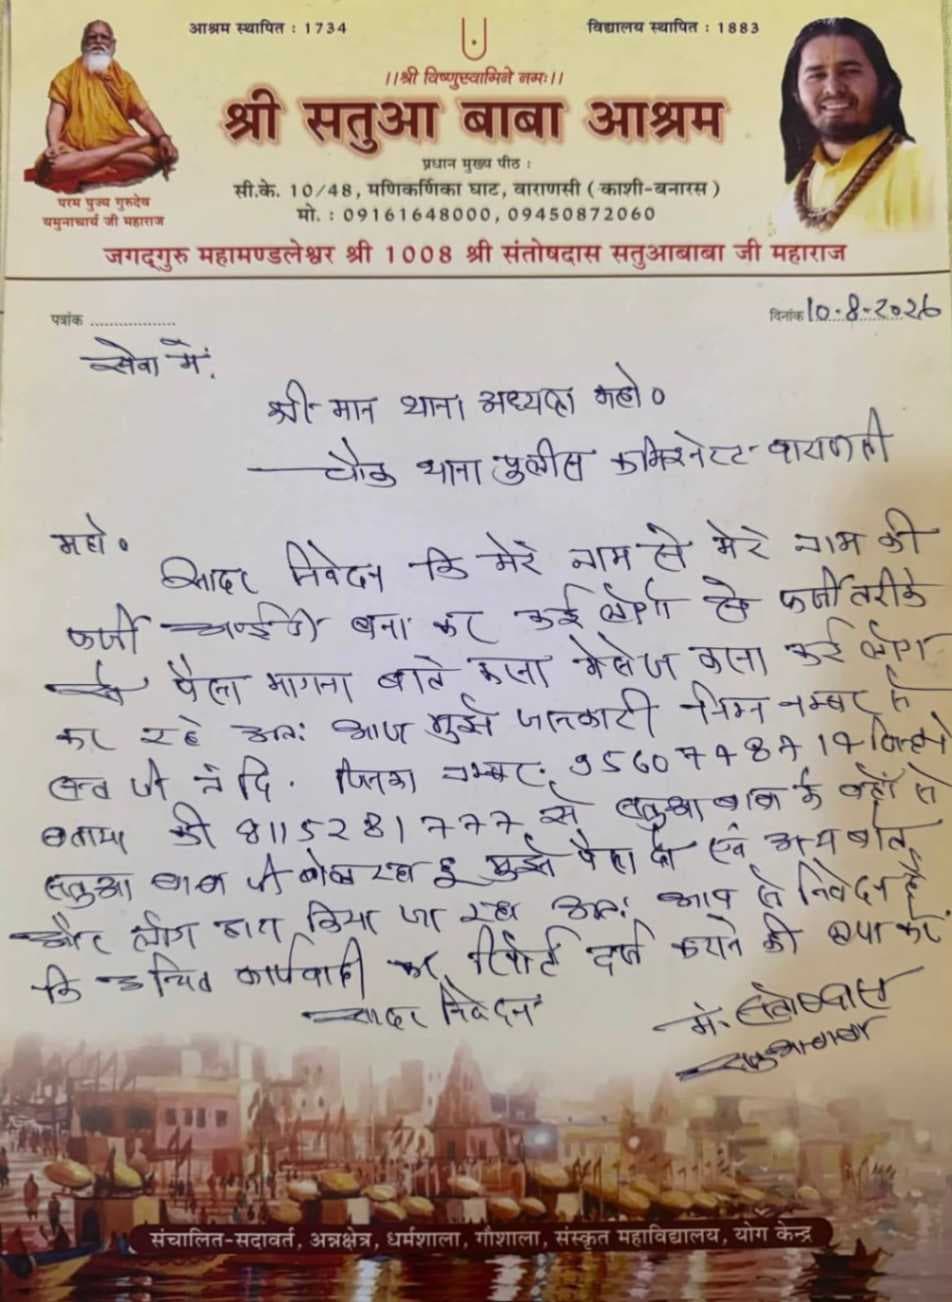 आश्रम स्थापित : 1734
विद्यालय स्थापित : 1883
।।श्री विष्णुस्वामिने नमः।।
श्री सतुआ बाबा आश्रम
प्रधान मुख्य पीठ :
सी.के. 10/48, मणिकर्णिका घाट, वाराणसी ( काशी-बनारस )
मो. : 09161648000, 09450872060
परम पुज्य गुरुदेव
यमुनाचार्य जी महाराज
जगद्गुरु महामण्डलेश्वर श्री 1008 श्री संतोषदास सतुआबाबा जी महाराज
पत्रांक ..................
दिनांक 10-8-2026
सेवा में,
श्री मान थाना अध्यक्ष महो०
चौक थाना पुलीस कमिश्नरेट वाराणसी
महो०
सादर निवेदन कि मेरे नाम से मेरे नाम की
फर्जी बना कर कई लोगो से फर्जी तरीके
से पैसा मागना बाते करना मैसेज करना कई लोग
कर रहे अतः आज मुझे जानकारी निम्न नम्बर से
जी ने दि. जिनका नम्बर 9560748719 जिन्होने
बताया की 8115281777 से सतुआ बाबा के वहाँ से
सतुआ बाबा जी बोल रहा हू मुझे पैसा दो एवं अन्य बात
और लोग द्वारा किया जा रहा अतः आप से निवेदन है
कि उचित कार्यवाही कर रिपोर्ट दर्ज कराने की कृपा करे
सादर निवेदन
म. संतोषदास
सतुआबाबा
संचालित-सदावर्त, अन्नक्षेत्र, धर्मशाला, गौशाला, संस्कृत महाविद्यालय, योग केन्द्र